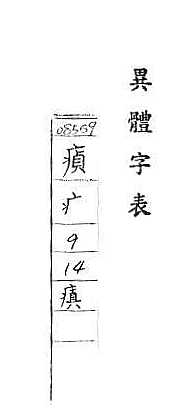 異體字表
08559
疒
9
14
瘨